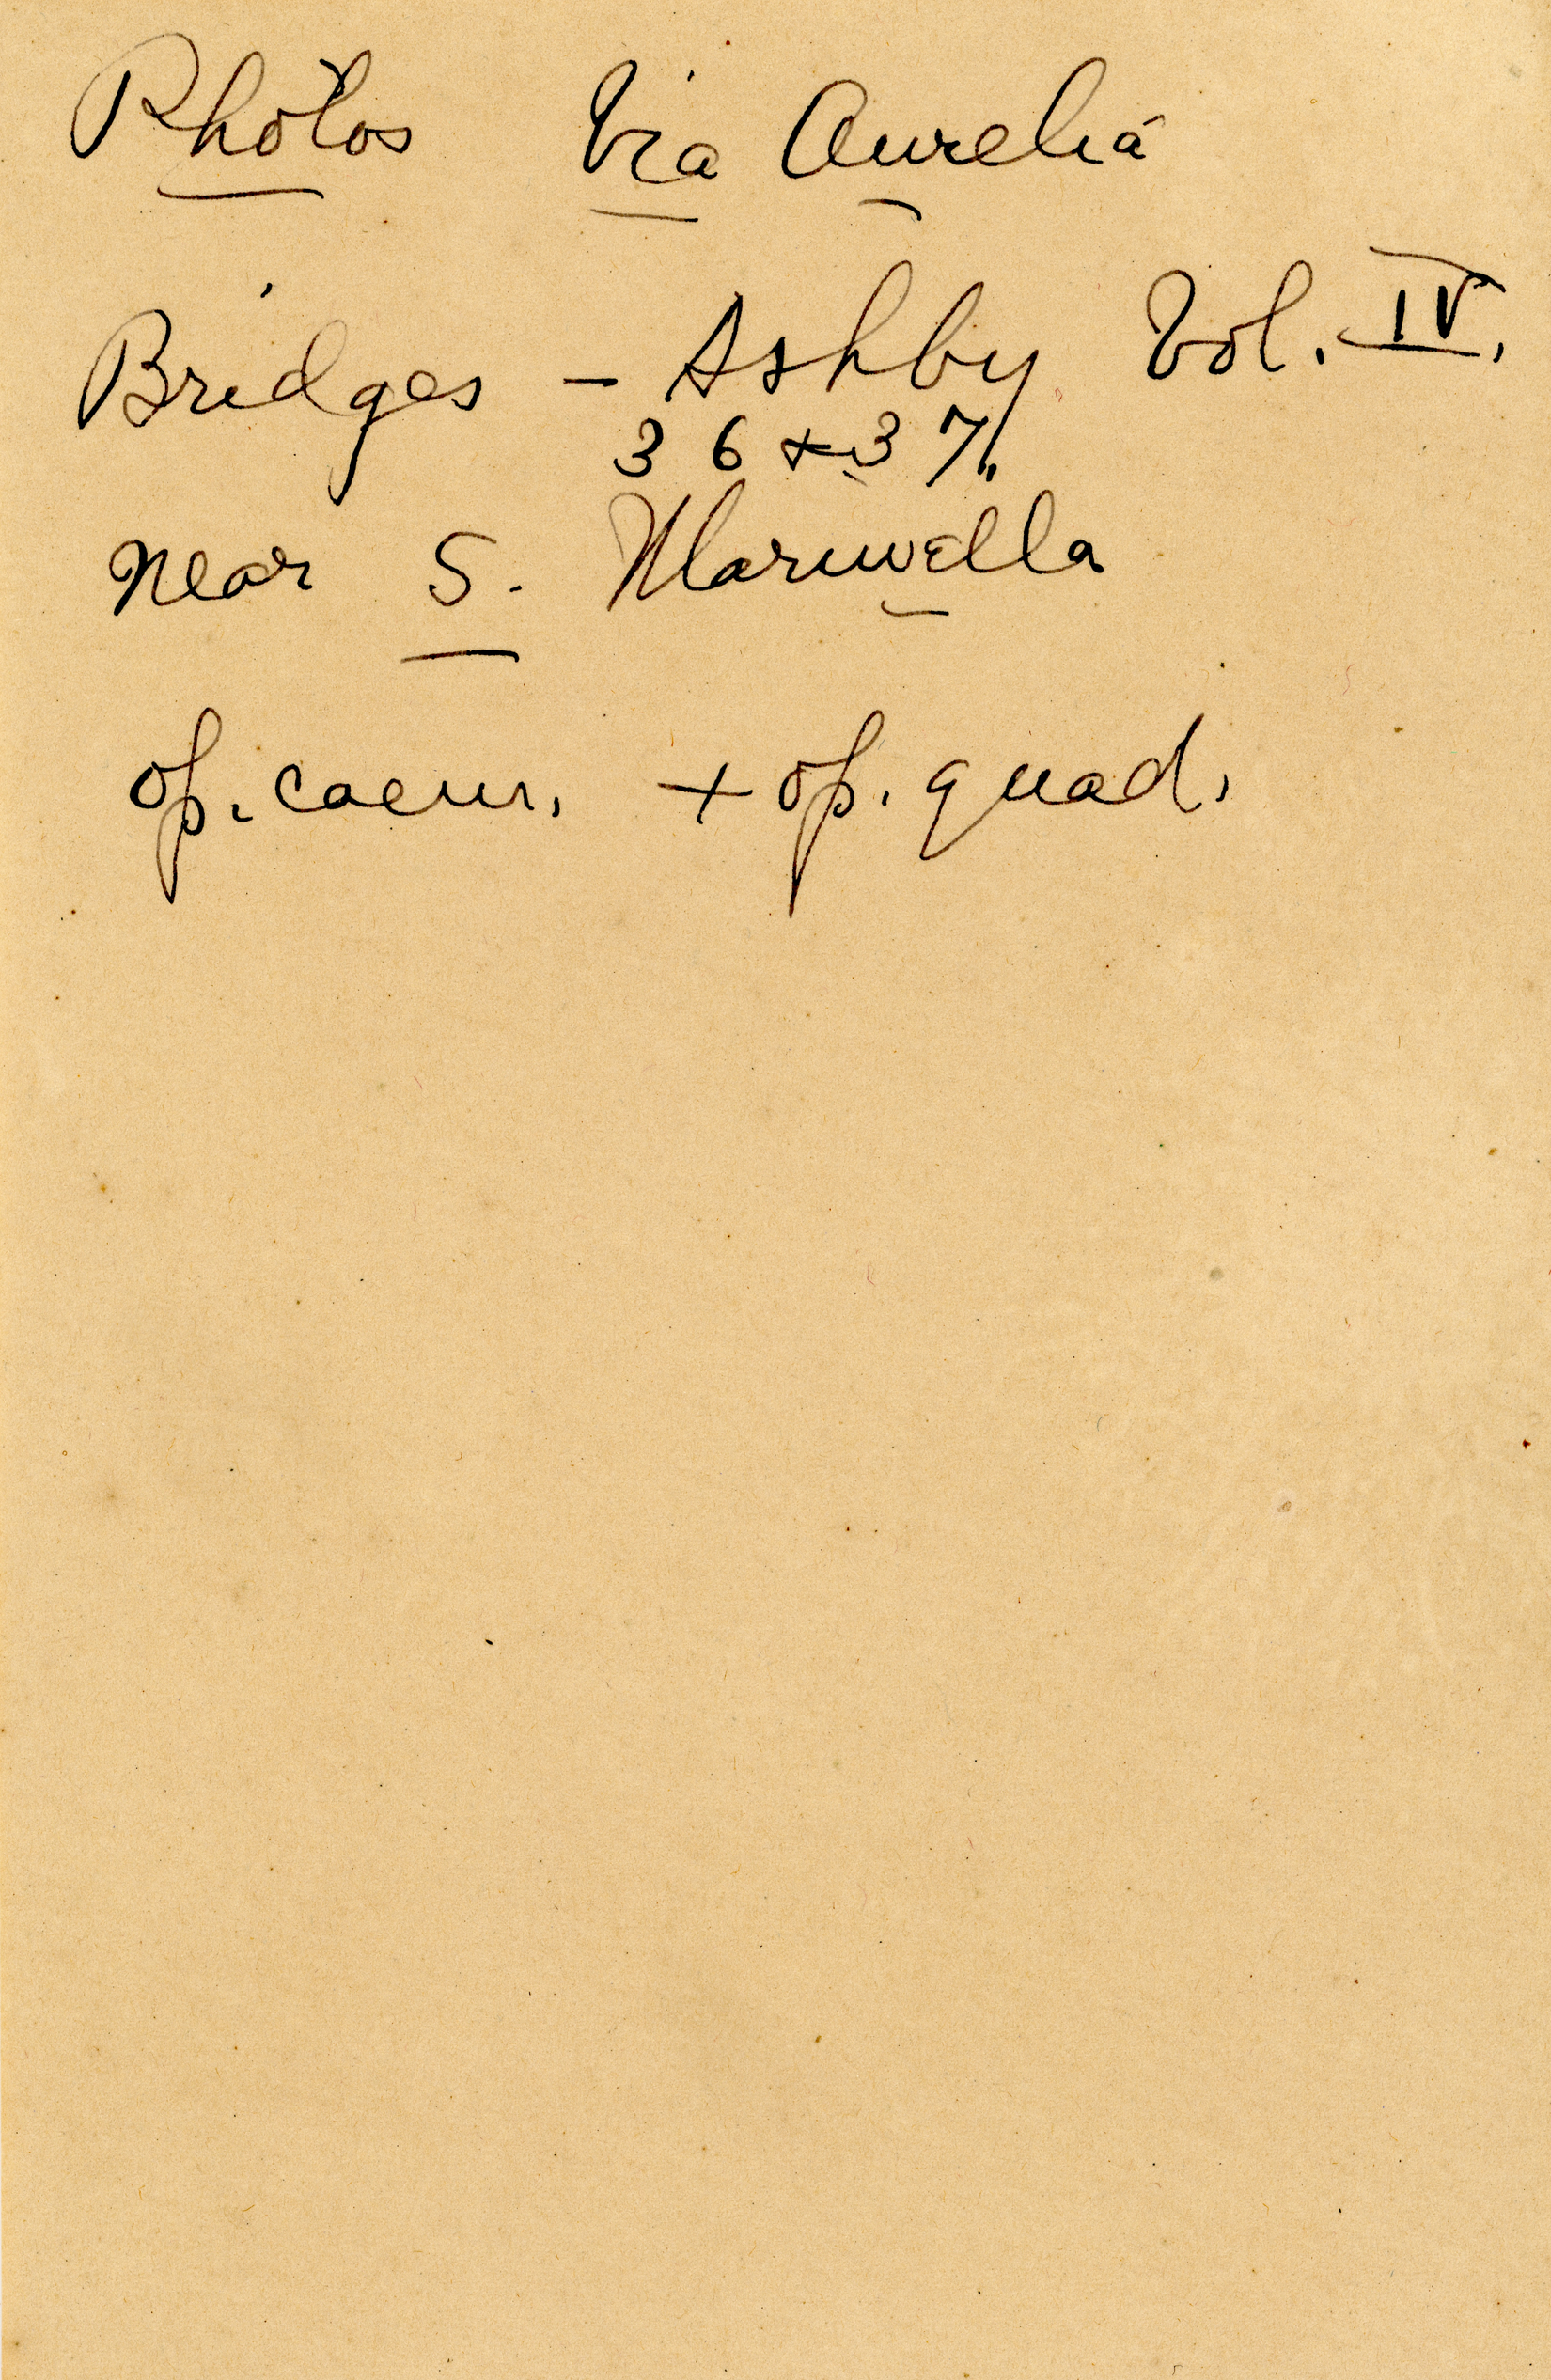 Photos Via Aurelia
Bridges - Ashby Vol. IV.
36 + 37.
near S. Marinella
op. caem. + op. quad.